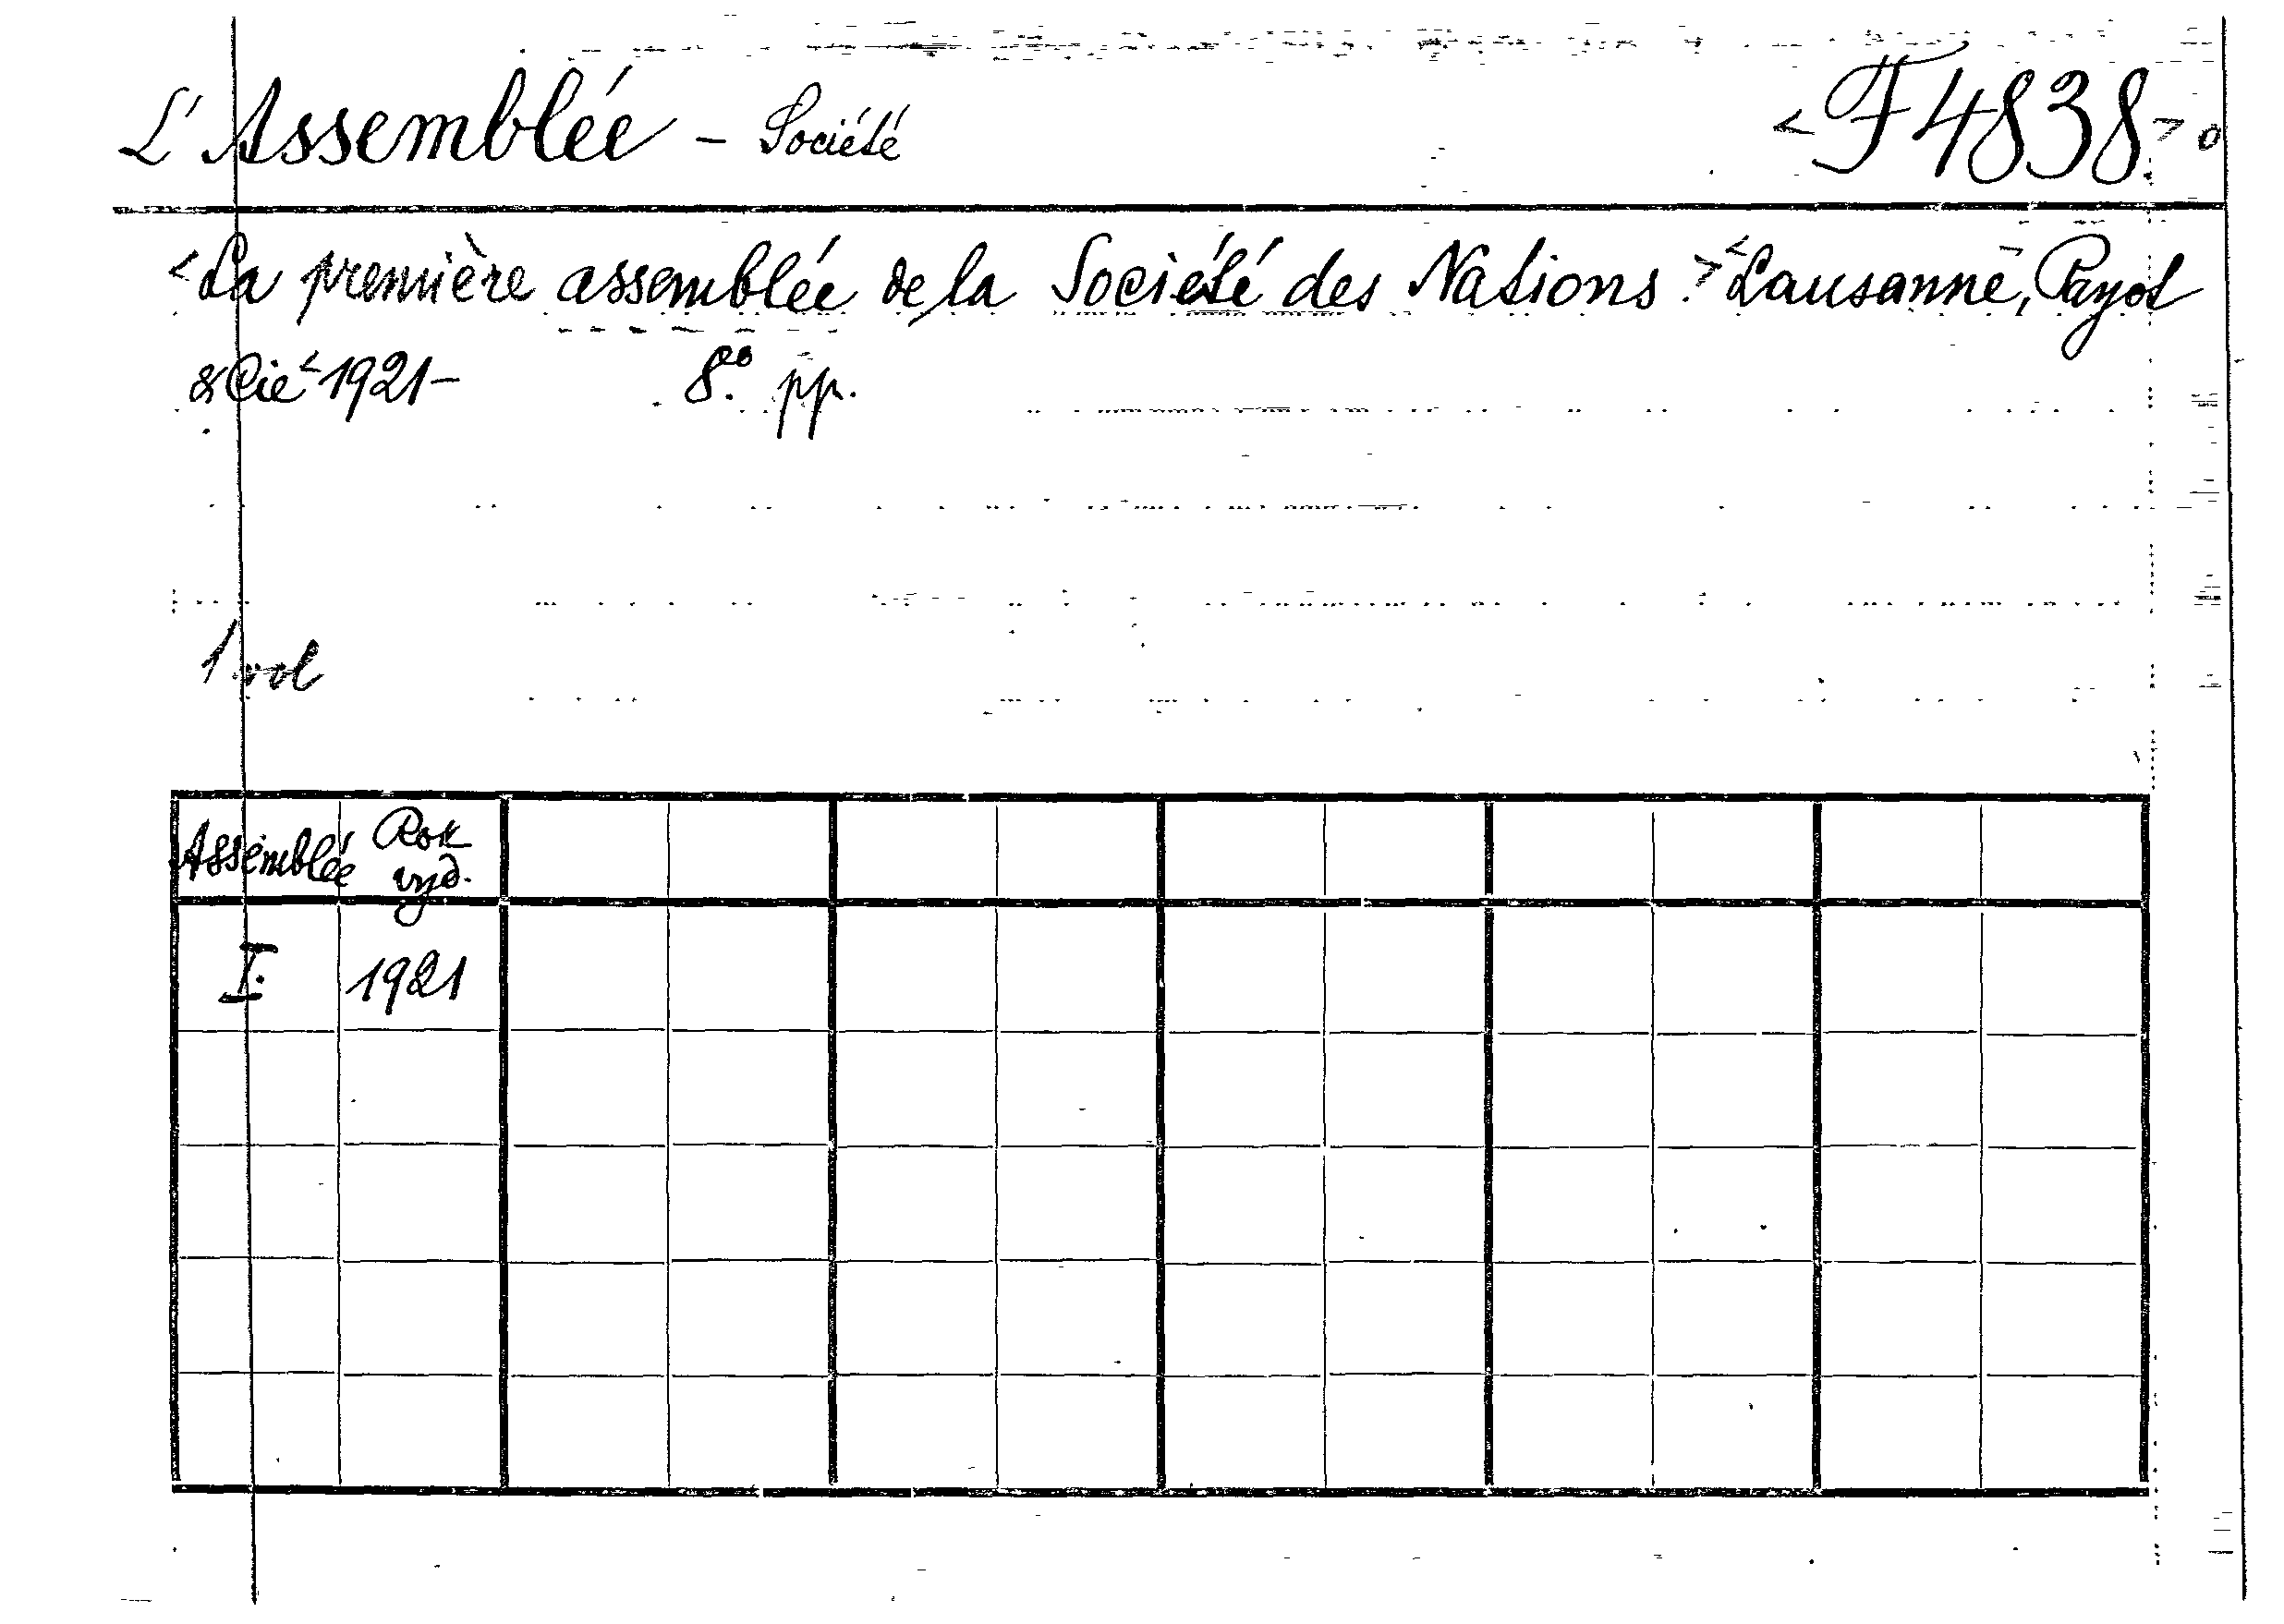 L'Assemblée - Société <F 4838.> o
<La première assemblée de la Société des Nations.> <Lausanne, Payot
& Cie <1921- 8.° pp.
1 vol
Assemblée Rok vyd.
I. 1921